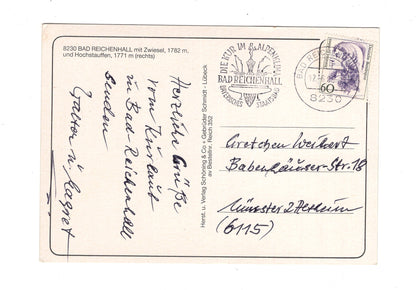 8230 BAD REICHENHALL mit Zwiesel, 1782 m.
und Hochstaufen, 1771 m (rechts)
Herzliche Grüße
vom Kurlaub
in Bad-Reichenhall
senden
Herst. u. Verlag Schöning & Co + Gebrüder Schmidt · Lübeck
DIE KUR IM ALPENKLIMA
BAD REICHENHALL
BAYERISCHES STAATSBAD
BAD REICHENHALL
8230
60
Gretchen Weikert
Babenhäuser-Str. 18
Münster
(6115)